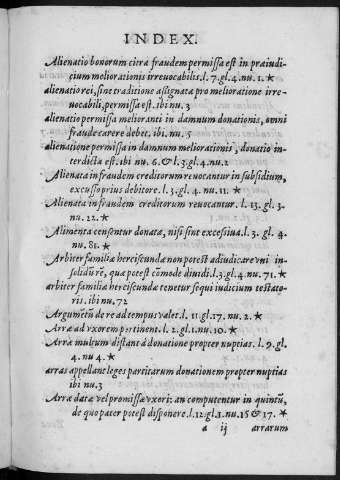 INDEX.
Alienatio bonorum citra fraudem permissa est in præiudi-
cium meliorationis irreuocabilis. l. 7. gl. 4. nu. 1. ★
alienatio rei, sine traditione assignata pro melioratione irre-
uocabili, permissa est. ibi nu. 3
alienatio permissa melioranti in damnum donationis, omni
fraude carere debet. ibi. nu. 5
alienatione permissa in damnum meliorationis, donatio in-
terdicta est. ibi nu. 6. & l. 3. gl. 4. nu. 2
Alienata in fraudem creditorum reuocantur in subsidium,
excusso prius debitore. l. 3. gl. 4. nu. 11. ★
Alienata in fraudem creditorum reuocantur. l. 13. gl. 3.
nu. 22. ★
Alimenta censentur donata, nisi sint excessiua. l. 3. gl. 4.
nu. 81. ★
Arbiter familiæ herciscundæ non potest adiudicare vni in-
solidũ rẽ, quæ potest cõmode diuidi. l. 3. gl. 4. nu. 71. ★
arbiter familiæ herciscundæ tenetur sequi iudicium testato-
ris. ibi nu. 72
Argumẽtũ de re ad tempus valet. l. 11. gl. 17. nu. 2. ★
Arræ ad vxorem pertinent. l. 2. gl. 1. nu. 10. ★
Arræ multum distant á donatione propter nuptias. l. 9. gl.
4. nu 4. ★
arras appellant leges partitarum donationem propter nuptias
ibi nu. 3
Arræ datæ vel promissæ vxori: an computentur in quintũ,
de quo pater potest disponere. l. 12. gl. 1. nu. 15 & 17. ★
a ij arrarum